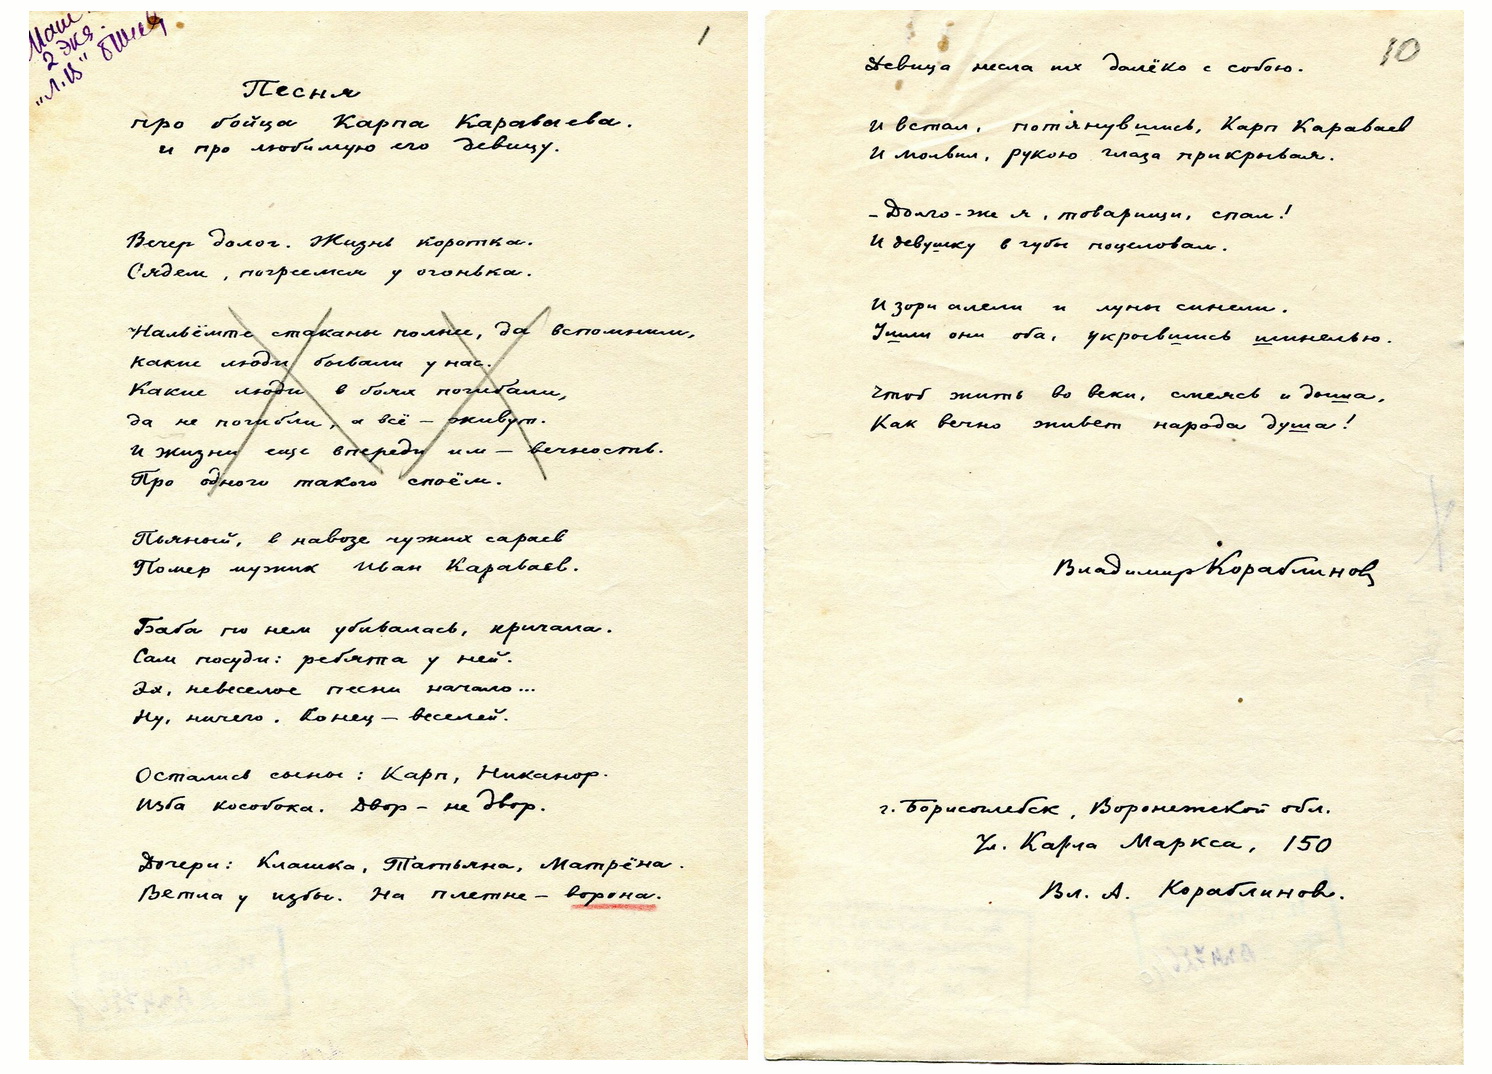 Маш.
2 экз.
"Л.И"
1
Песня
про бойца Карпа Караваева.
и про любимую его девицу.
Вечер долог. Жизнь коротка.
Сядем, погреемся у огонька.
Нальёмте стаканы полнее, да вспомним,
Какие люди бывали у нас.
Какие люди в боях погибали,
Да не погибли, а всё – живут.
И жизни еще впереди им – вечность.
Про одного такого споём.
Пьяный, в навозе чужих сараев
Помер мужик Иван Караваев.
Баба по нем убивалась, кричала.
Сам посуди: ребята у ней.
Эх, невеселое песни начало...
Ну, ничего. Конец – веселей.
Остались сыны: Карп, Никанор.
Изба кособока. Двор – не двор.
Дочери: Клашка, Татьяна, Матрёна.
Ветла у избы. На плетне – ворона.
10
Девица несла их далёко с собою.
И встал, потянувшись, Карп Караваев
И молвил, рукою глаза прикрывая.
– Долго-же я, товарищи, спал!
И девушку в губы поцеловал.
И зори алели и луны синели.
Ушли они оба, укрывшись шинелью.
Чтоб жить во веки, смеясь и дыша,
Как вечно живет народа душа!
Владимир Кораблинов
г. Борисоглебск, Воронежской обл.
Ул. Карла Маркса, 150
Вл. А. Кораблинов.